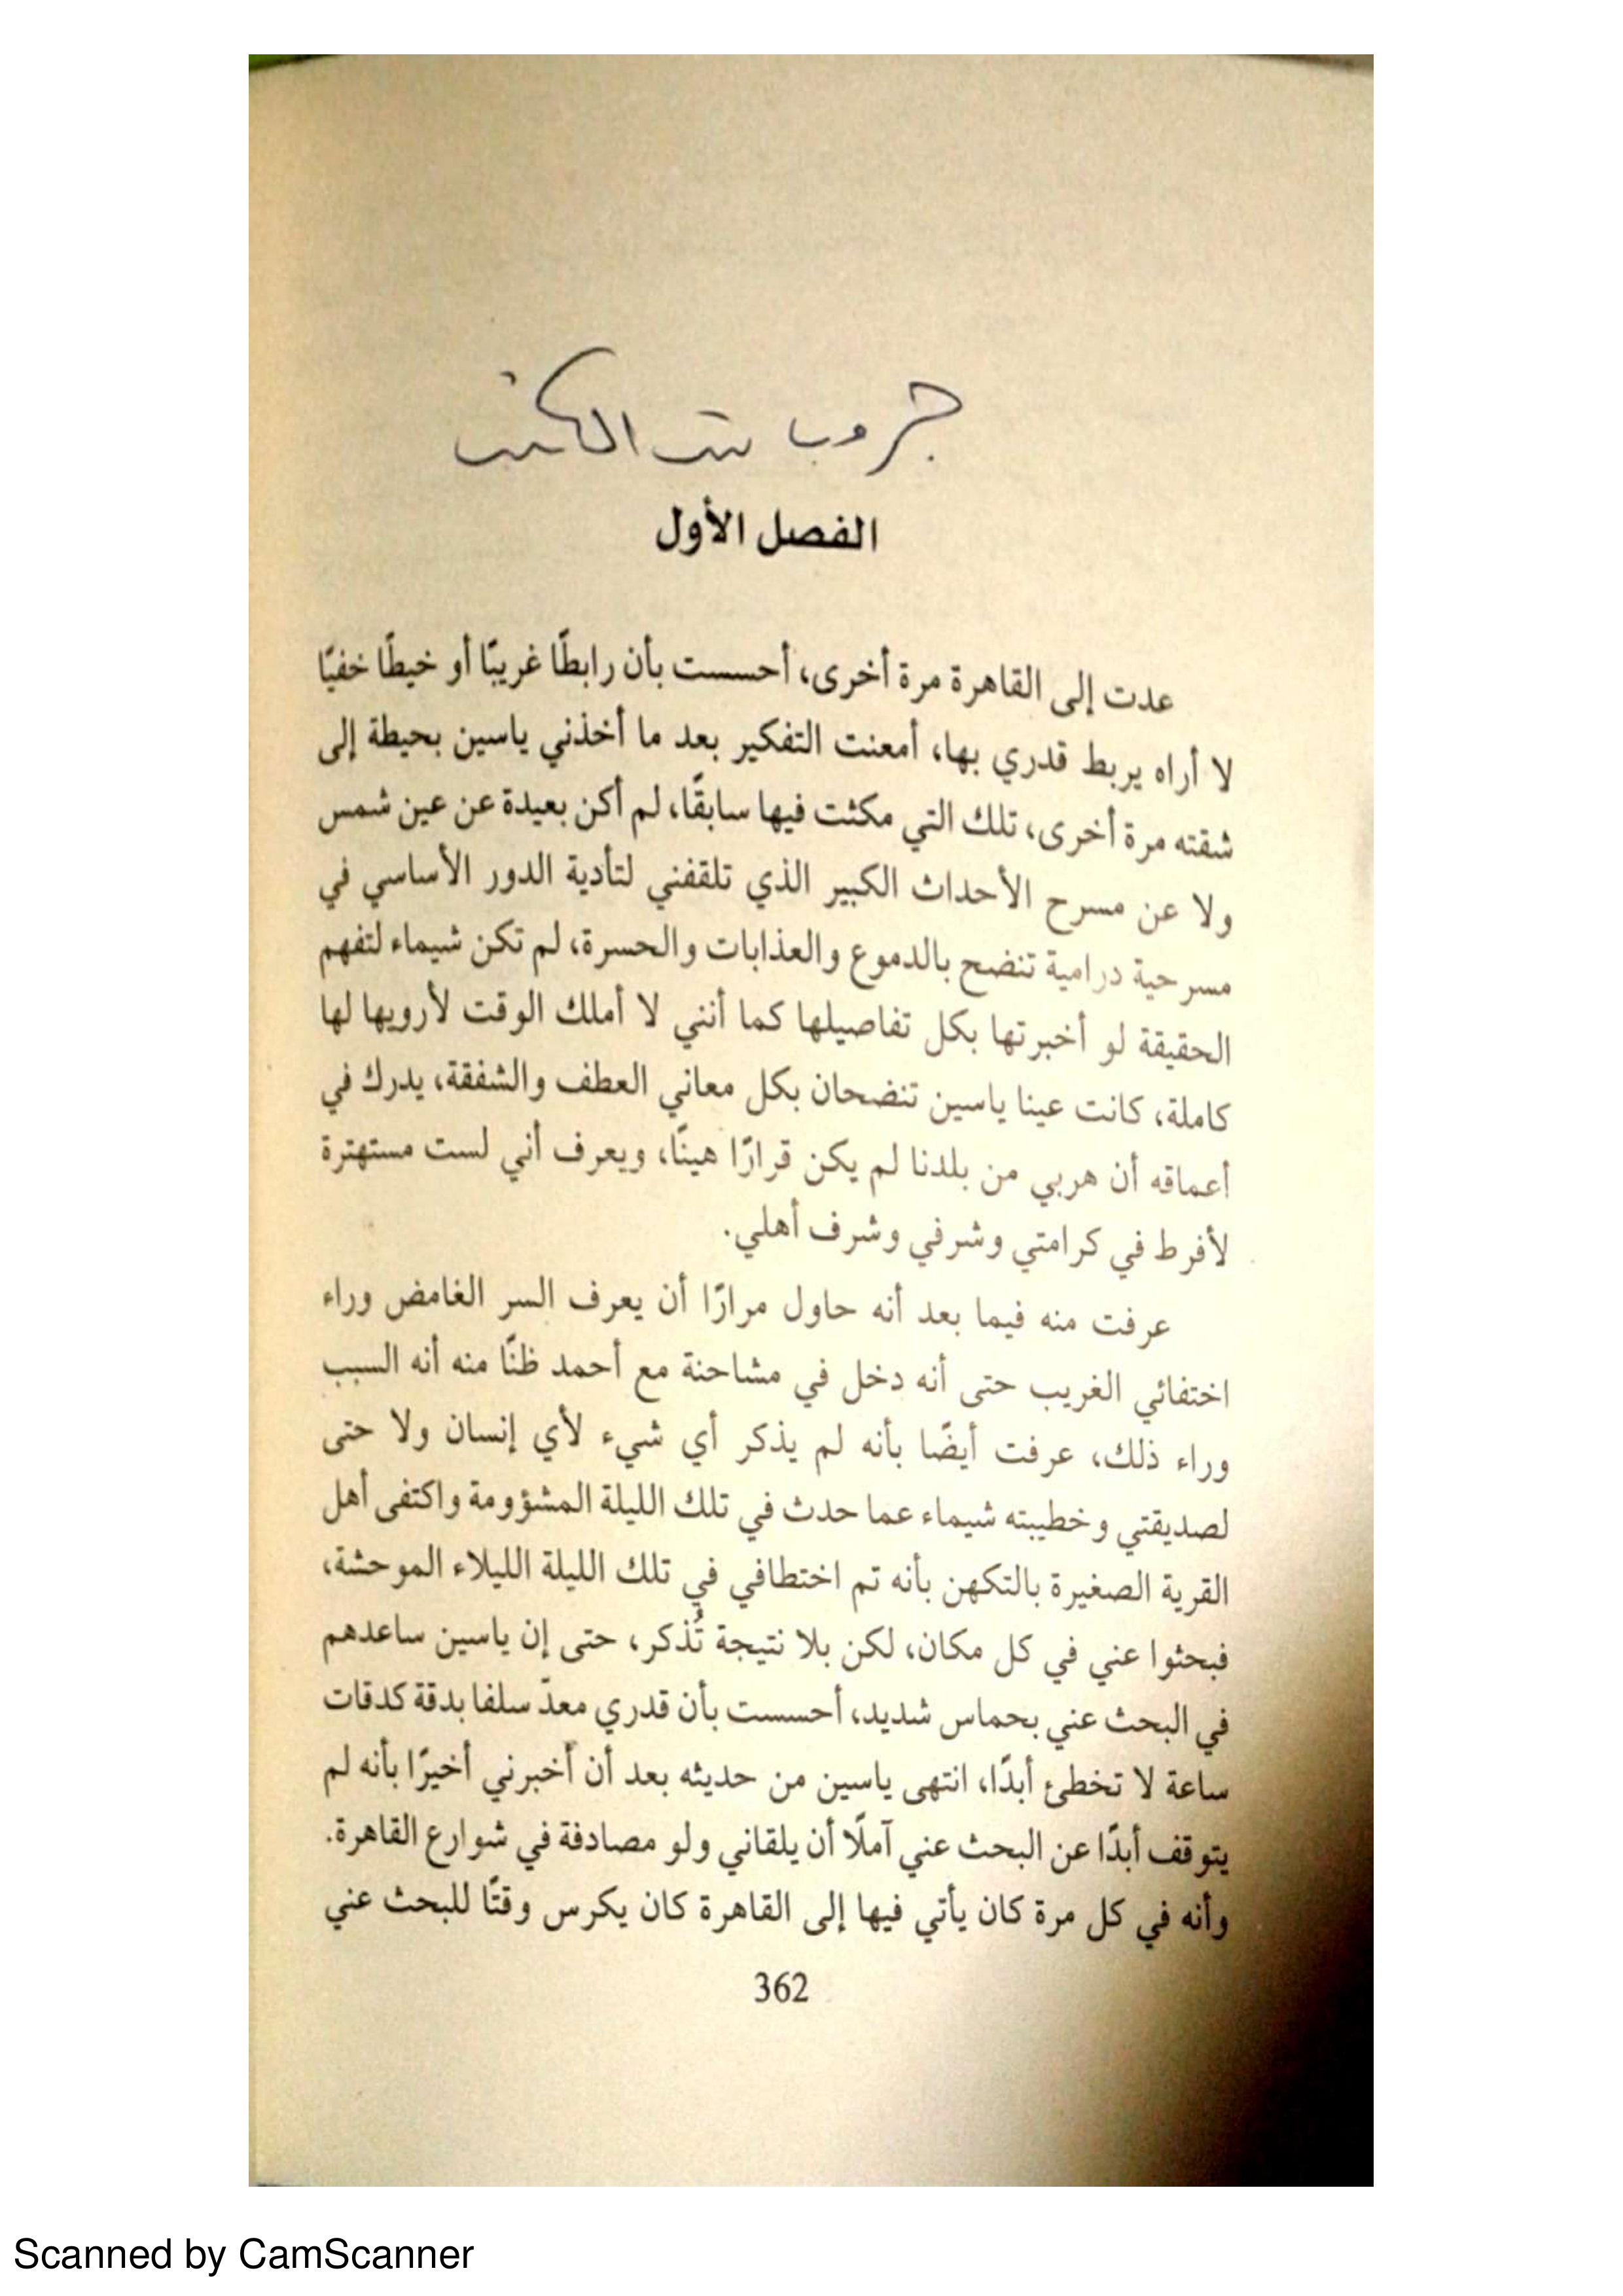 جروب بيت الكتب
الفصل الأول
عدت إلى القاهرة مرة أخرى، أحسست بأن رابطًا غريبًا أو خيطًا خفيًا
لا أراه يربط قدري بها، أمعنت التفكير بعد ما أخذني ياسين بحيطة إلى
شقته مرة أخرى، تلك التي مكثت فيها سابقًا، لم أكن بعيدة عن عين شمس
ولا عن مسرح الأحداث الكبير الذي تلقفني لتأدية الدور الأساسي في
مسرحية درامية تنضح بالدموع والعذابات والحسرة، لم تكن شيماء لتفهم
الحقيقة لو أخبرتها بكل تفاصيلها كما أنني لا أملك الوقت لأرويها لها
كاملة، كانت عينا ياسين تنضحان بكل معاني العطف والشفقة، يدرك في
أعماقه أن هربي من بلدنا لم يكن قرارًا هينًا، ويعرف أني لست مستهترة
لأفرط في كرامتي وشرفي وشرف أهلي.
عرفت منه فيما بعد أنه حاول مرارًا أن يعرف السر الغامض وراء
اختفائي الغريب حتى أنه دخل في مشاحنة مع أحمد ظنًا منه أنه السبب
وراء ذلك، عرفت أيضًا بأنه لم يذكر أي شيء لأي إنسان ولا حتى
لصديقتي وخطيبته شيماء عما حدث في تلك الليلة المشؤومة واكتفى أهل
القرية الصغيرة بالتكهن بأنه تم اختطافي في تلك الليلة الليلاء الموحشة،
فبحثوا عني في كل مكان، لكن بلا نتيجة تُذكر، حتى إن ياسين ساعدهم
في البحث عني بحماس شديد، أحسست بأن قدري معدّ سلفا بدقة كدقات
ساعة لا تخطئ أبدًا، انتهى ياسين من حديثه بعد أن أخبرني أخيرًا بأنه لم
يتوقف أبدًا عن البحث عني آملًا أن يلقاني ولو مصادفة في شوارع القاهرة.
وأنه في كل مرة كان يأتي فيها إلى القاهرة كان يكرس وقتًا للبحث عني
362
Scanned by CamScanner